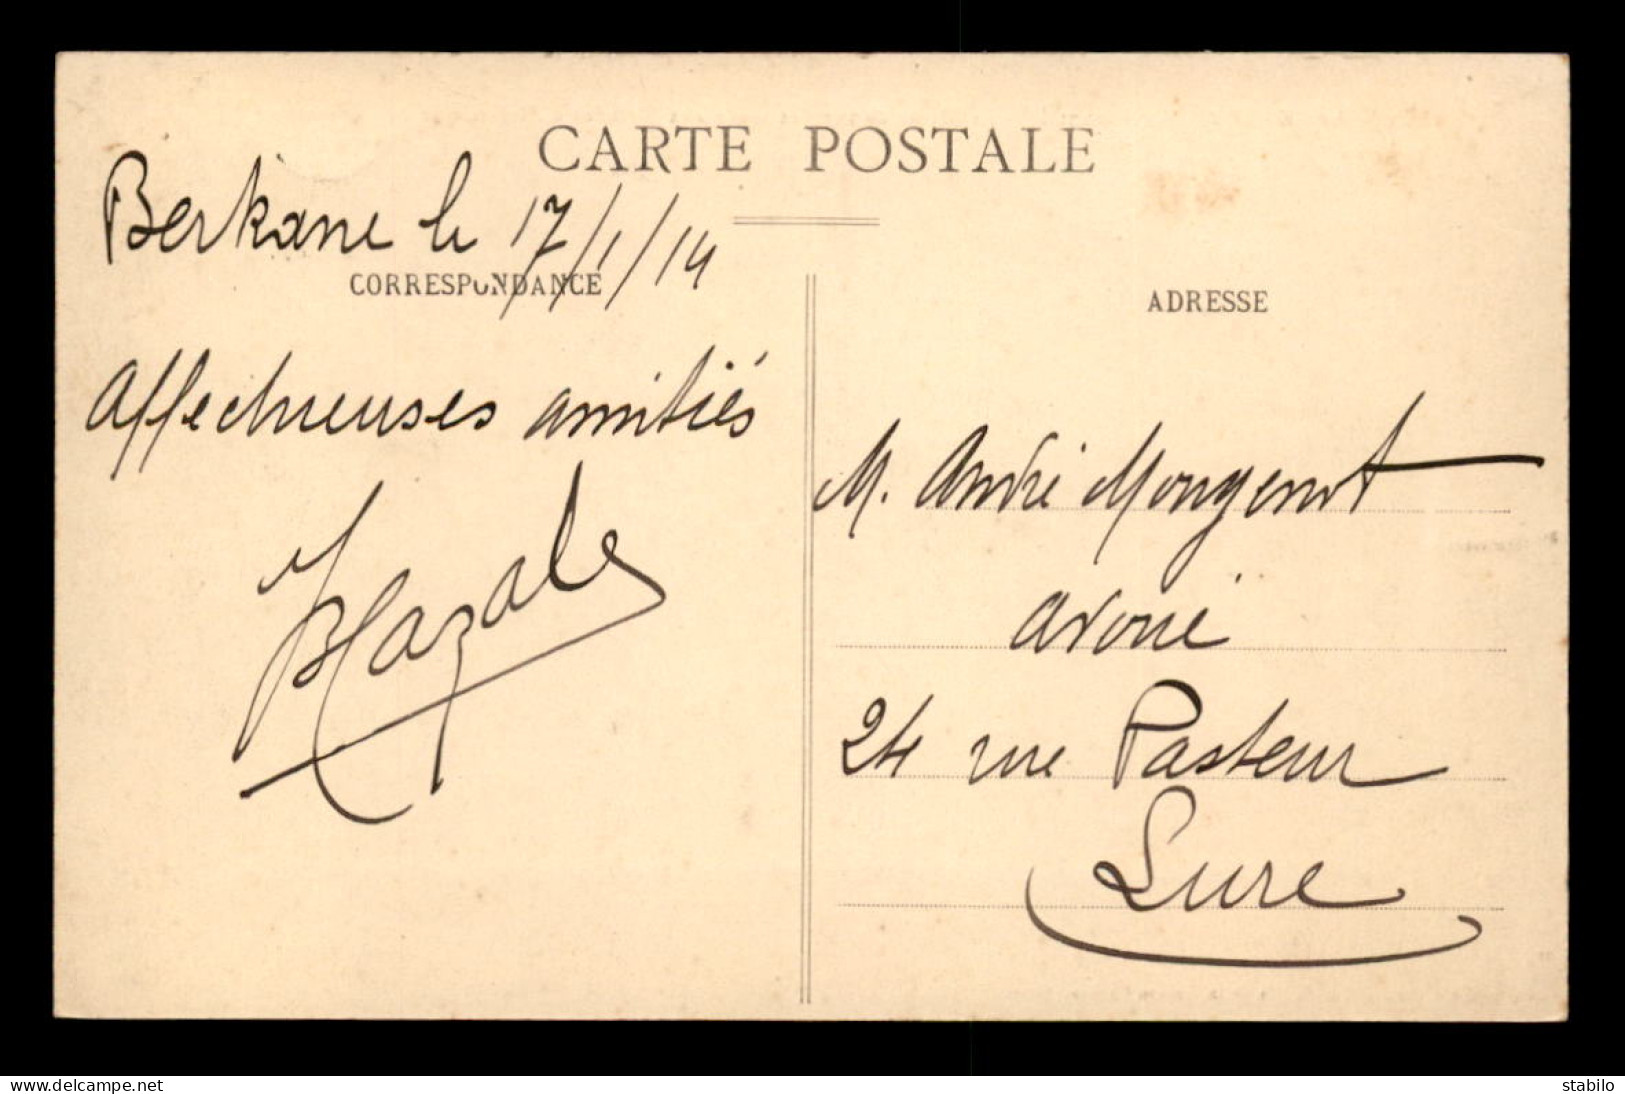 CARTE POSTALE
Berkane le 17/1/14
CORRESPONDANCE
ADRESSE
Affectueuses amitiés
M. André Mougenot
avoué
24 rue Pasteur
Lure
www.delcampe.net
stabilo